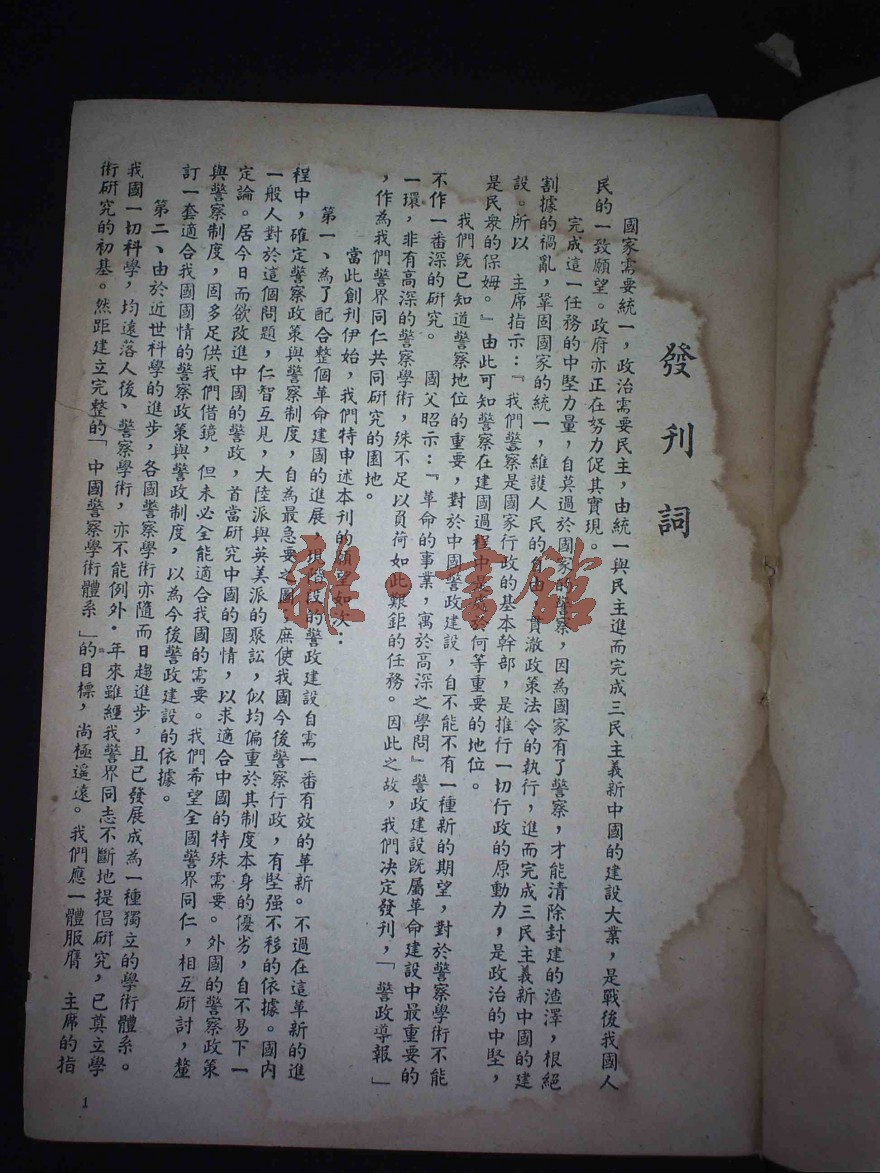 發刊詞
國家需要統一，政治需要民主，由統一與民主進而完成三民主義新中國的建設大業，是戰後我國人
民的一致願望。政府亦正在努力促其實現。
完成這一任務的中堅力量，自莫過於國家的警察，因為國家有了警察，才能清除封建的渣澤，根絕
割據的禍亂，鞏固國家的統一，維護人民的自由，貫澈政策法令的執行，進而完成三民主義新中國的建
設。所以　主席指示：『我們警察是國家行政的基本幹部，是推行一切行政的原動力，是政治的中堅，
是民衆的保姆。』由此可知警察在建國過程中是居於何等重要的地位。
我們旣已知道警察地位的重要，對於中國警政建設，自不能不有一種新的期望，對於警察學術不能
不作一番深的研究。　國父昭示：『革命的事業，寓於高深之學問』警政建設旣屬革命建設中最重要的
一環，非有高深的警察學術，殊不足以負荷如此艱鉅的任務。因此之故，我們決定發刊，「警政導報」
，作為我們警界同仁共同研究的園地。
當此創刊伊始，我們特申述本刊的願望如次：
第一、為了配合整個革命建國的進展，現階段的警政建設自需一番有效的革新。不過在這革新的進
程中，確定警察政策與警察制度，自為最急要之圖，庶使我國今後警察行政，有堅强不移的依據。國內
一般人對於這個問題，仁智互見，大陸派與英美派的聚訟，似均偏重於其制度本身的優劣，自不易下一
定論。居今日而欲改進中國的警政，首當研究中國的國情，以求適合中國的特殊需要。外國的警察政策
與警察制度，固多足供我們借鏡，但未必全能適合我國的需要。我們希望全國警界同仁，相互研討，釐
訂一套適合我國國情的警察政策與警政制度，以為今後警政建設的依據。
第二、由於近世科學的進步，各國警察學術亦隨而日趨進步，且已發展成為一種獨立的學術體系。
我國一切科學，均遠落人後、警察學術，亦不能例外。年來雖經我警界同志不斷地提倡研究，已奠立學
術研究的初基。然距建立完整的「中國警察學術體系」的目標，尚極遥遠。我們應一體服膺　主席的指
1
雜·書館